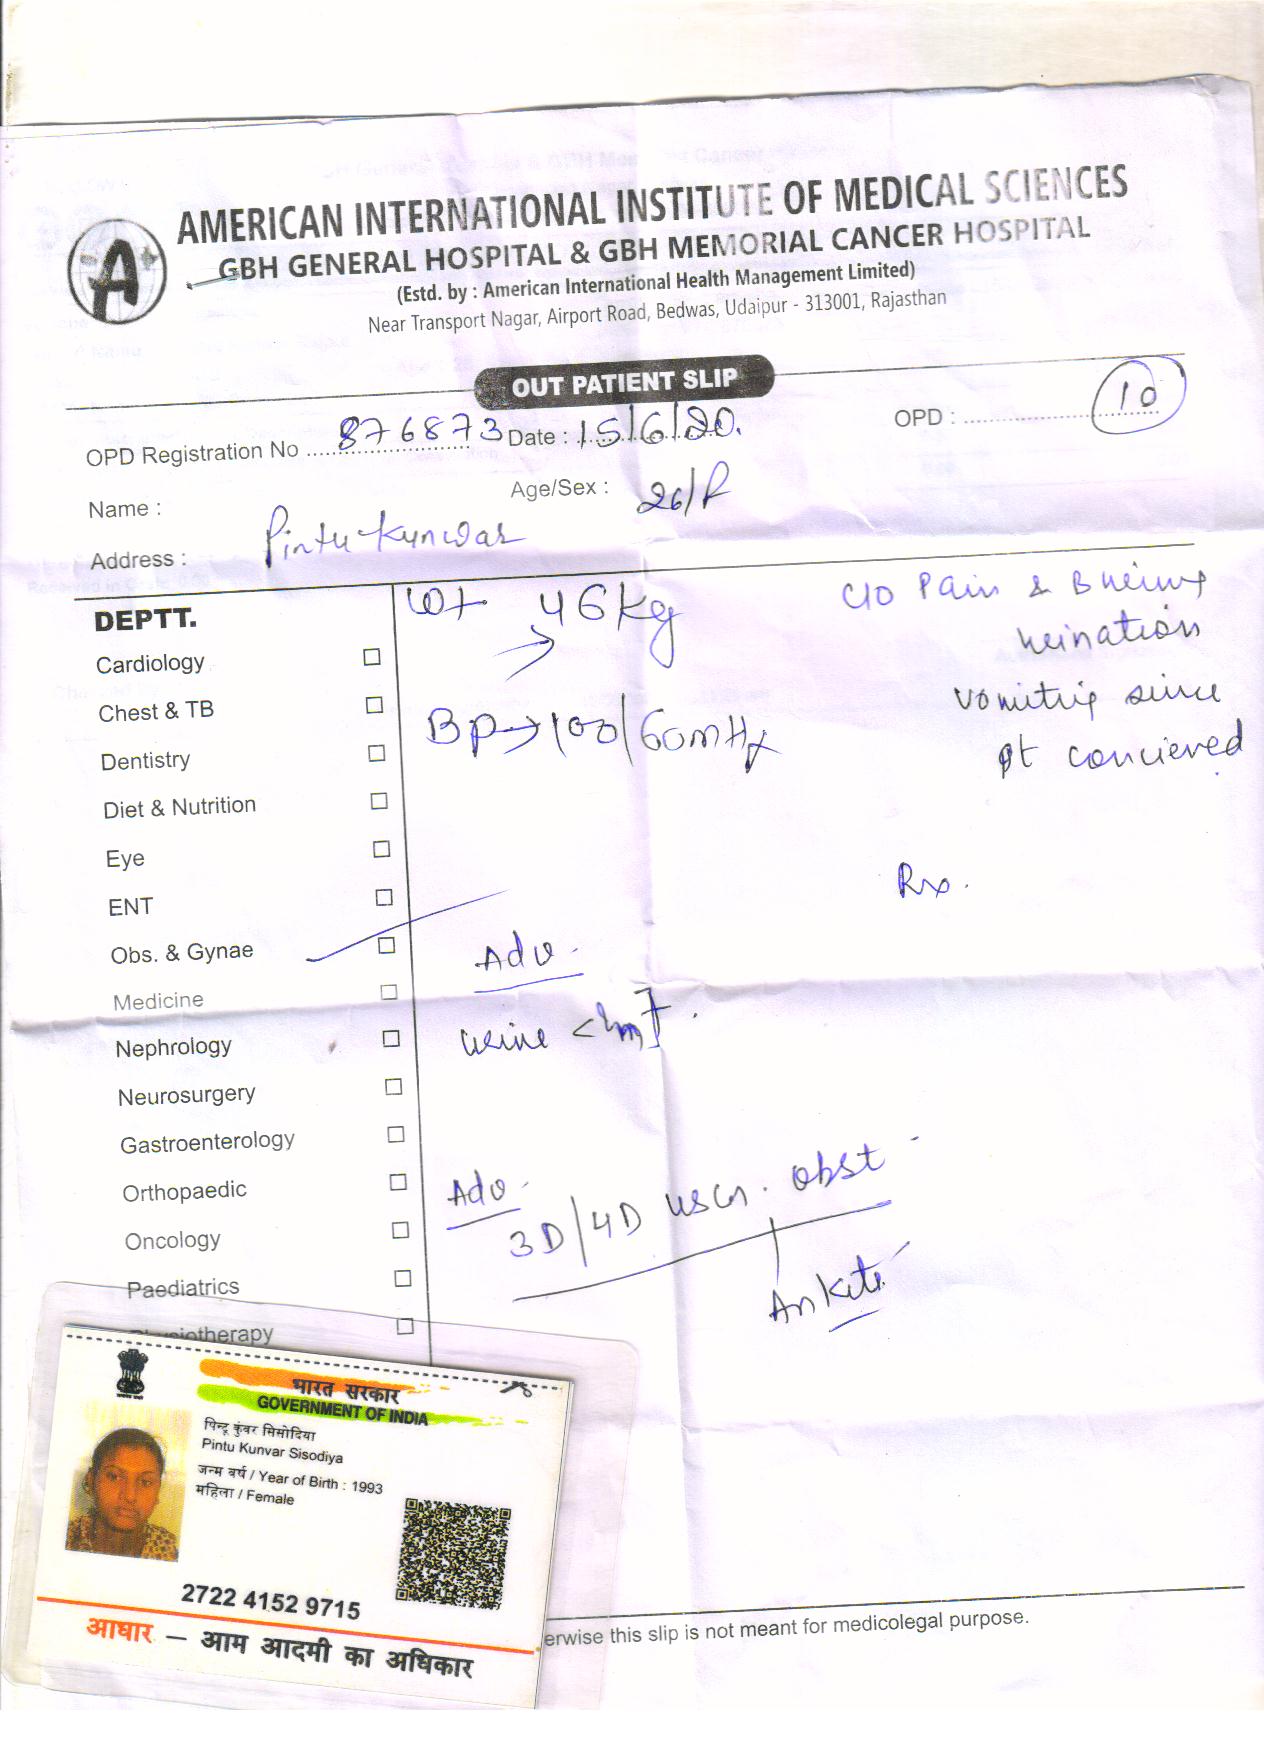 AMERICAN INTERNATIONAL INSTITUTE OF MEDICAL SCIENCES
GBH GENERAL HOSPITAL & GBH MEMORIAL CANCER HOSPITAL
(Estd. by : American International Health Management Limited)
Near Transport Nagar, Airport Road, Bedwas, Udaipur - 313001, Rajasthan
OUT PATIENT SLIP
OPD Registration No 876873 Date : 15/6/20. OPD : 10
Name : Pintu Kunwar Age/Sex : 26/F
Address :
DEPTT.
Cardiology
Chest & TB
Dentistry
Diet & Nutrition
Eye
ENT
Obs. & Gynae
Medicine
Nephrology
Neurosurgery
Gastroenterology
Orthopaedic
Oncology
Paediatrics
Physiotherapy
Wt 46 kg
BP → 100/60 mm
C/O Pain &
vomiting since
pt concieved
Rx.
Adv.
urine
Adv.
3D/4D USG. Obst
भारत सरकार
GOVERNMENT OF INDIA
पिन्टू कुंवर सिसोदिया
Pintu Kunvar Sisodiya
जन्म वर्ष / Year of Birth : 1993
महिला / Female
2722 4152 9715
आधार – आम आदमी का अधिकार
erwise this slip is not meant for medicolegal purpose.